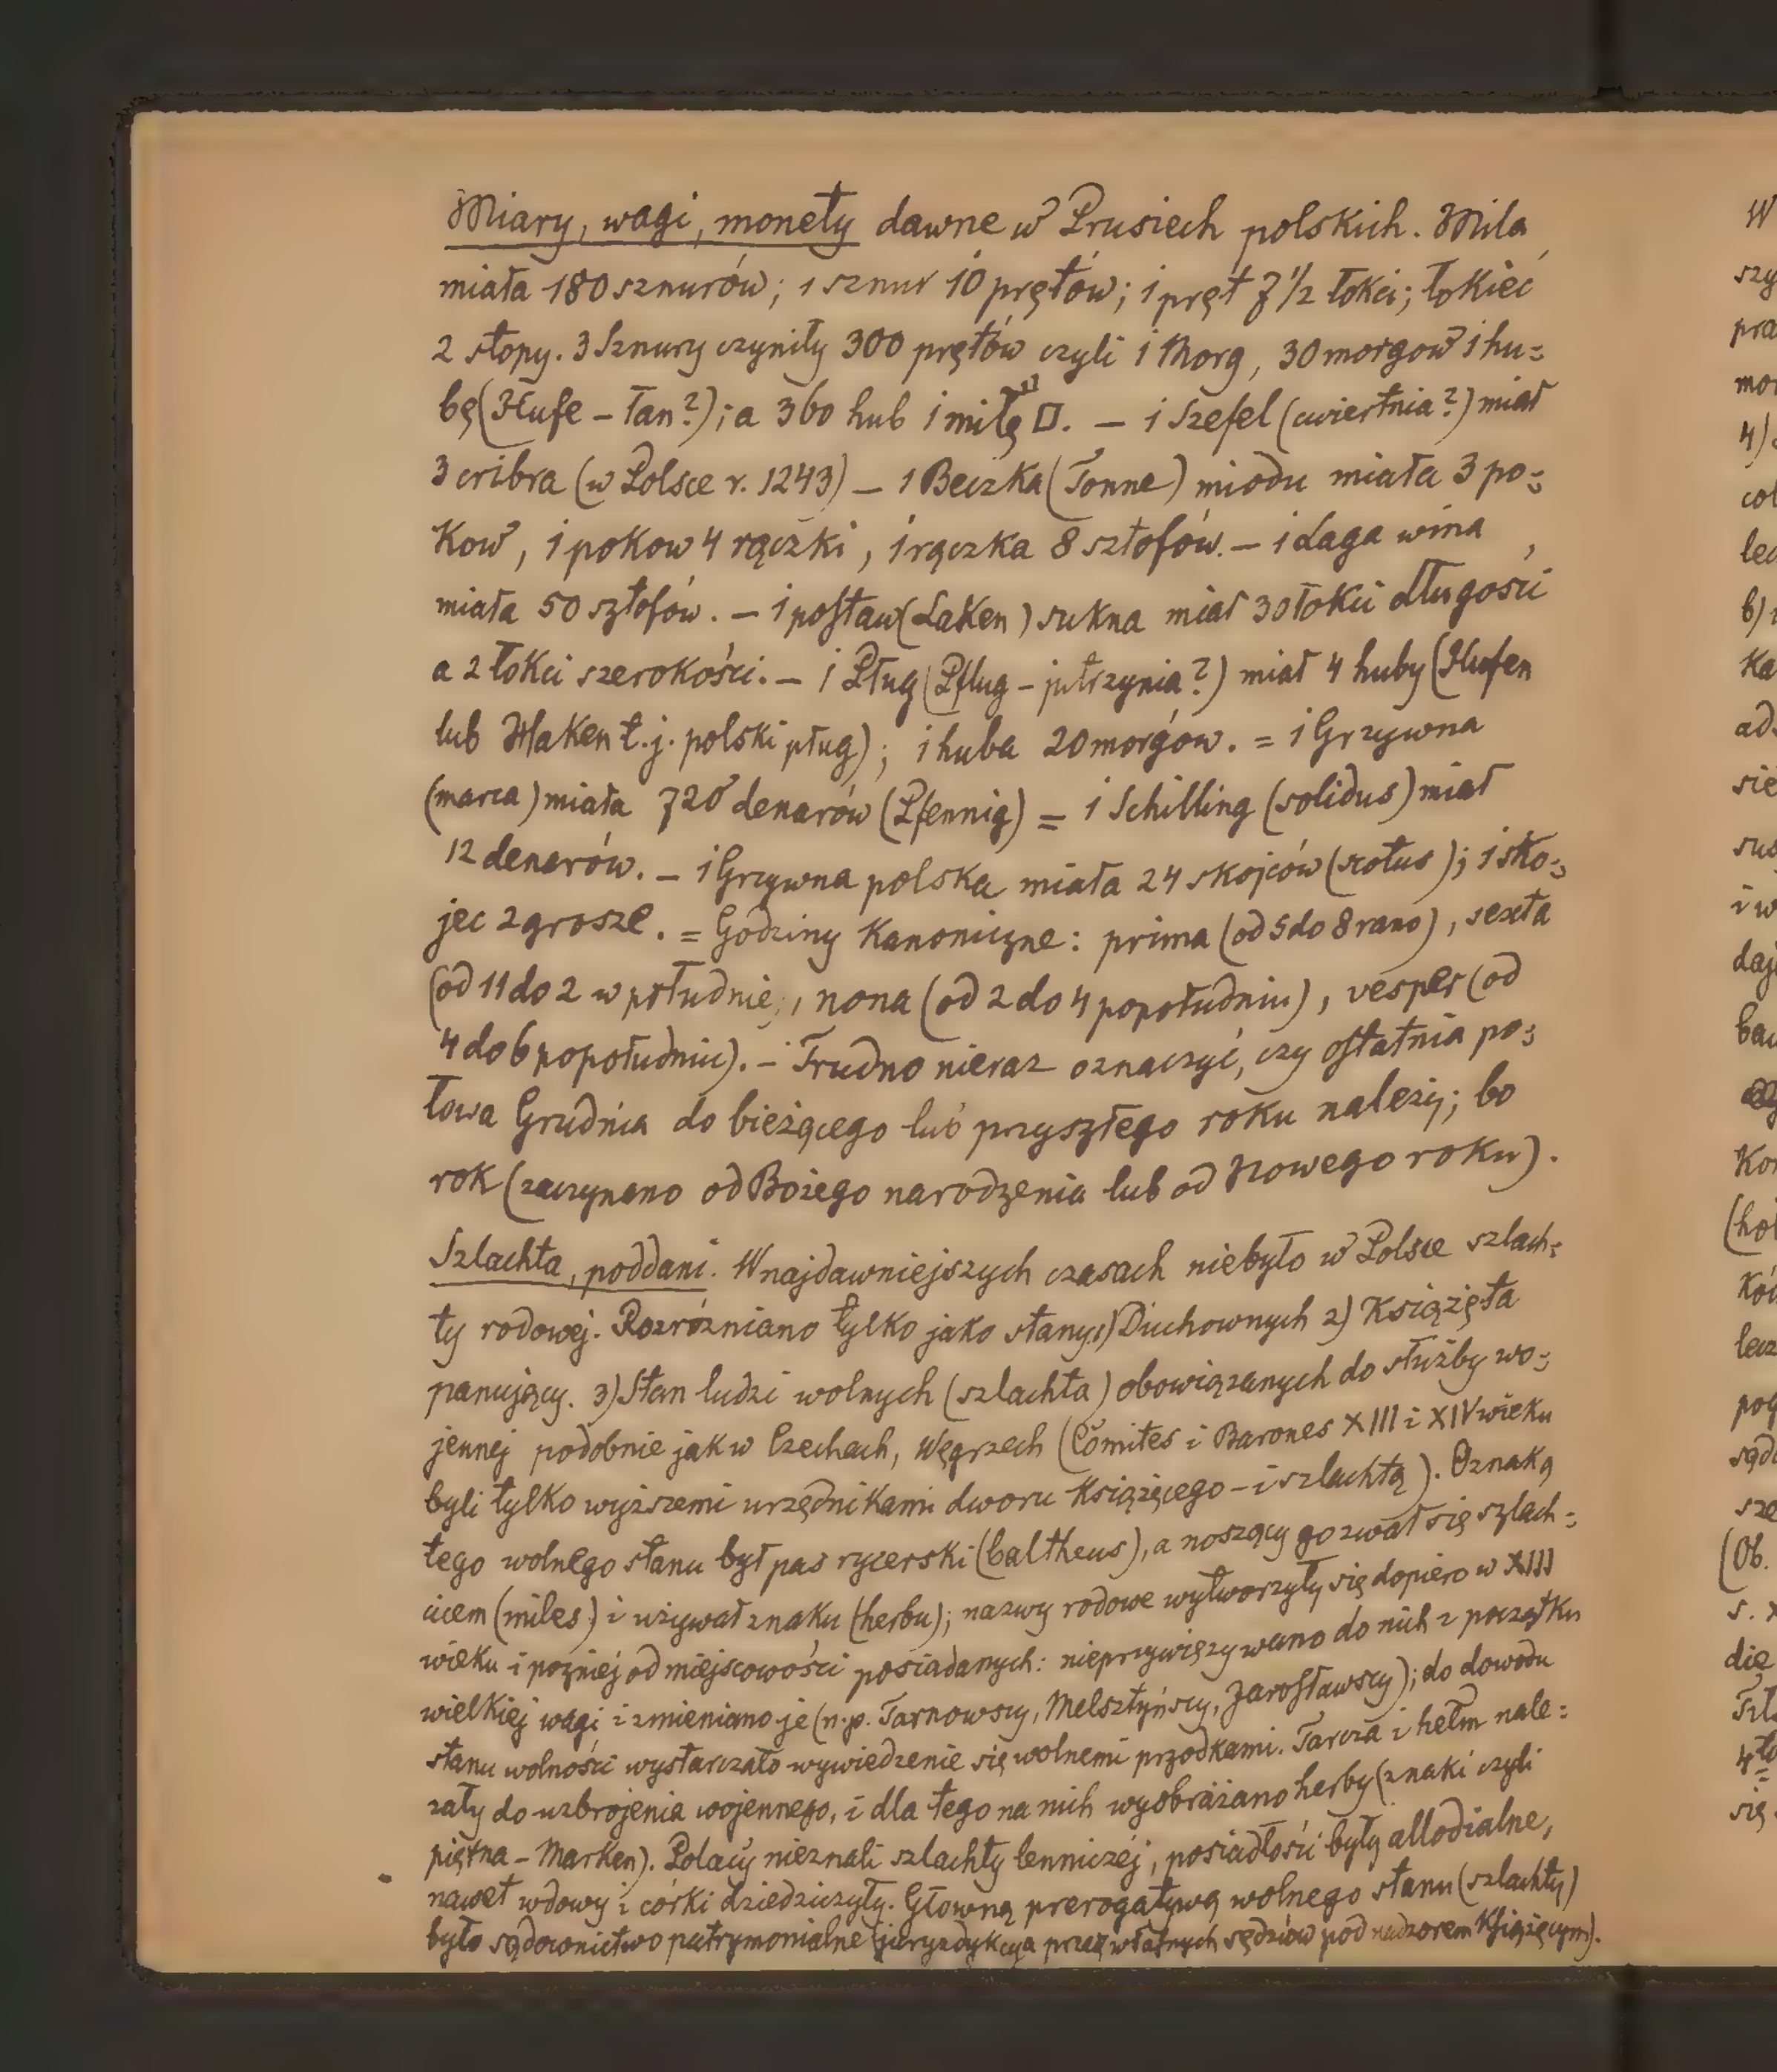 Miary, wagi, monety dawne w Prusiech polskich. Mila
miała 180 sznurów; 1 sznur 10 prętów; 1 pręt 7 1/2 łokci; łokieć
2 stopy. 3 Sznury czyniły 300 prętów czyli 1 Morg, 30 morgow 1 hu=
bę (Hufe – łan?); a 360 hub 1 milę □. – 1 Szefel (cwiertnia?) miał
3 cribra (w Polsce r. 1243) – 1 Beczka (Tonne) miodu miała 3 po=
kow, 1 pokow 4 rączki, 1 rączka 8 sztofów. – 1 Laga wina
miała 50 sztofów. – 1 postaw (Laken) sukna miał 30 łokci długości
a 2 łokci szerokości. – 1 Pług (Pflug – jutrzynia?) miał 4 huby (Hufen
lub Haken t.j. polski pług); 1 huba 20 morgów. = 1 Grzywna
(marca) miała 720 denarów (Pfennig) = 1 Schilling (solidus) miał
12 denarów. – 1 Grzywna polska miała 24 skojców (scotus); 1 sko=
jec 2 grosze. = Godziny Kanoniczne: prima (od 5 do 8 rano), sexta
(od 11 do 2 w południe, nona (od 2 do 4 popołudniu), vesper (od
4 do 6 popołudniu). – Trudno nieraz oznaczyć, czy ostatnia po=
łowa Grudnia do bieżącego lub przyszłego roku należy; bo
rok (zaczynano od Bożego narodzenia lub od Nowego roku).
Szlachta, poddani. W najdawniejszych czasach niebyło w Polsce szlach=
ty rodowej. Rozróżniano tylko jako stany: 1) Duchownych 2) Książęta
panujący. 3) Stan ludzi wolnych (szlachta) obowiązanych do służby wo=
jennej podobnie jak w Czechach, Węgrzech (Comites i Barones XIII i XIV wieku
byli tylko wyższemi urzędnikami dworu Książęcego – i szlachtą). Oznaką
tego wolnego stanu był pas rycerski (baltheus), a noszący go zwał się szlach=
cicem (miles) i używał znaku (herbu); nazwy rodowe wytworzyły się dopiero w XIII
wieku i pozniej od miejscowości posiadanych: nieprzywięzywano do nich z początku
wielkiej wagi i zmieniano je (n.p. Tarnowscy, Melsztyńscy, Jarosławscy); do dowodu
stanu wolności wystarczało wywiedzenie się wolnemi przodkami. Tarcza i hełm nale=
zały do uzbrojenia wojennego, i dla tego na nich wyobrażano herby (znaki czyli
piętna – Marken). Polacy nieznali szlachty lenniczéj, posiadłości były allodialne,
nawet wdowy i córki dziedziczyły. Głowną prerogatywą wolnego stanu (szlachty)
było sądownictwo patrymonialne (juryzdykcya przez własnych sędziów pod nadzorem Książęcym).